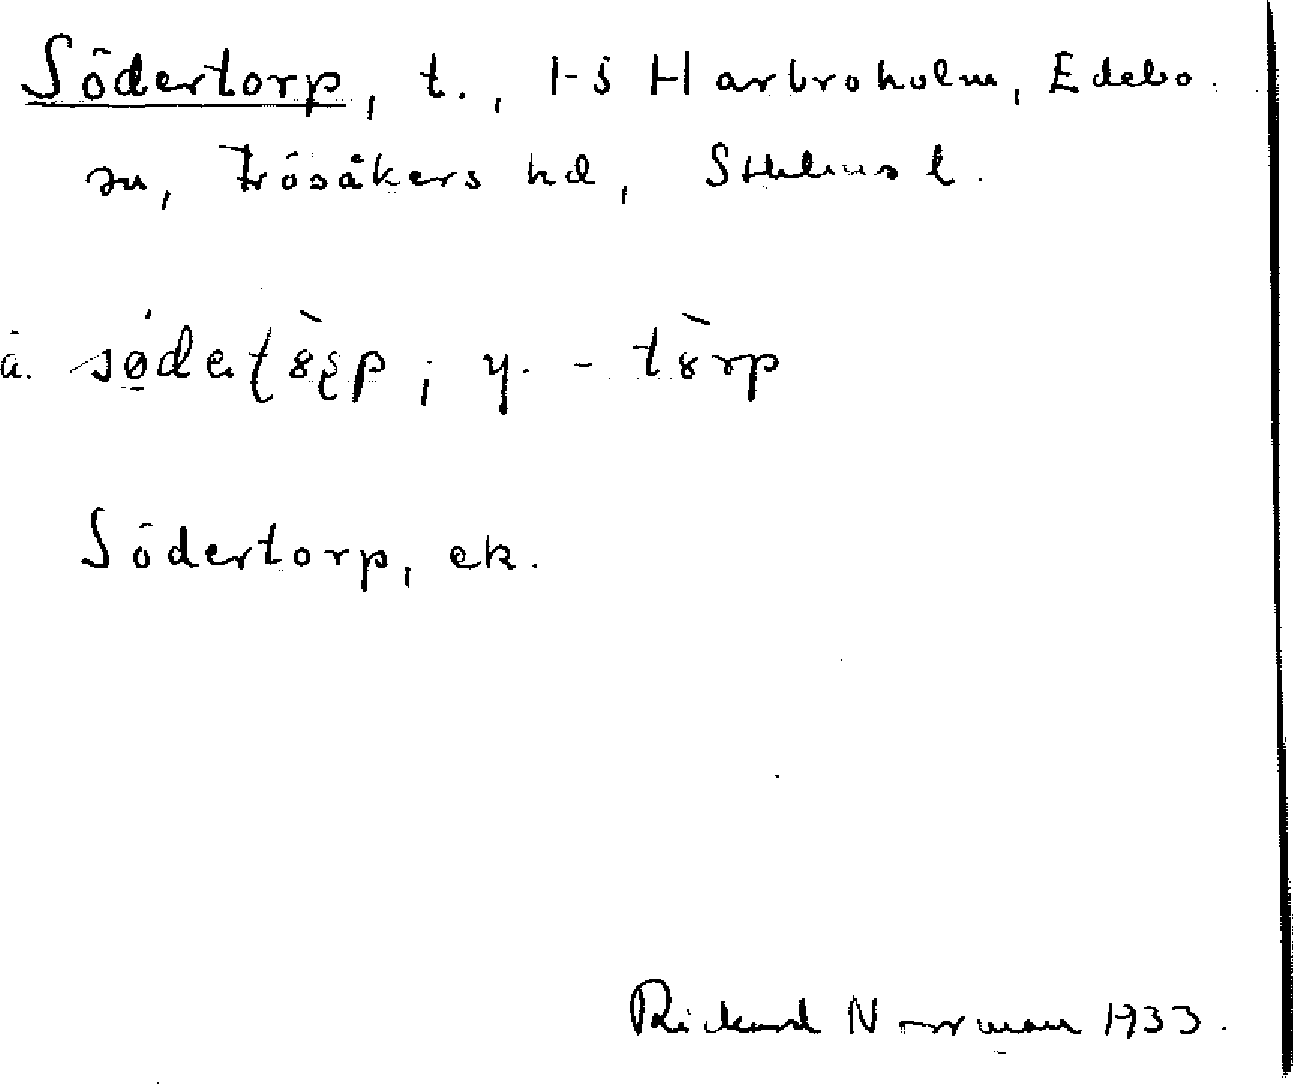 Södertorp, t., Harbroholm, Edebo
sn, Frösåkers hd, Sthlms l.
ä. sødeṭ8ṣp ; y. - t8rp
Södertorp, ek.
Rickard Norrman 1933.